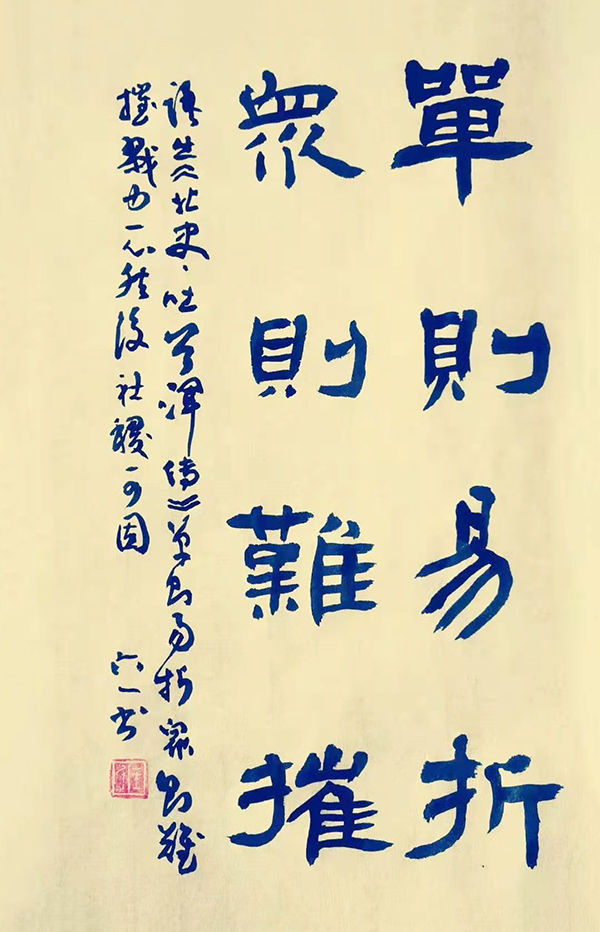 單則易折
眾則難摧
語出《北史·吐谷渾傳》單則易折眾則難
摧戮力一心然後社稷可固
六一書